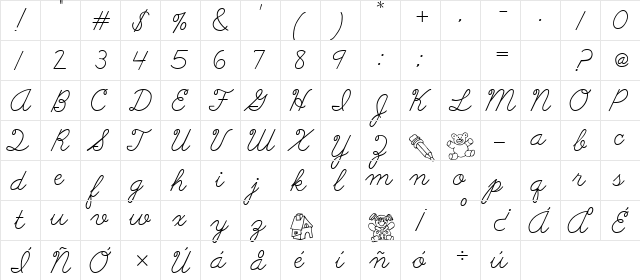 ! " # $ % & ' ( ) * + , - . / 0
1 2 3 4 5 6 7 8 9 : ; = ? @
A B C D E F G H I J K L M N O P
Q R S T U V W X Y Z _ a b c
d e f g h i j k l m n o p q r s
t u v w x y z | ¿ Á Å É
Í Ñ Ó × Ú á å é í ñ ó ÷ ú